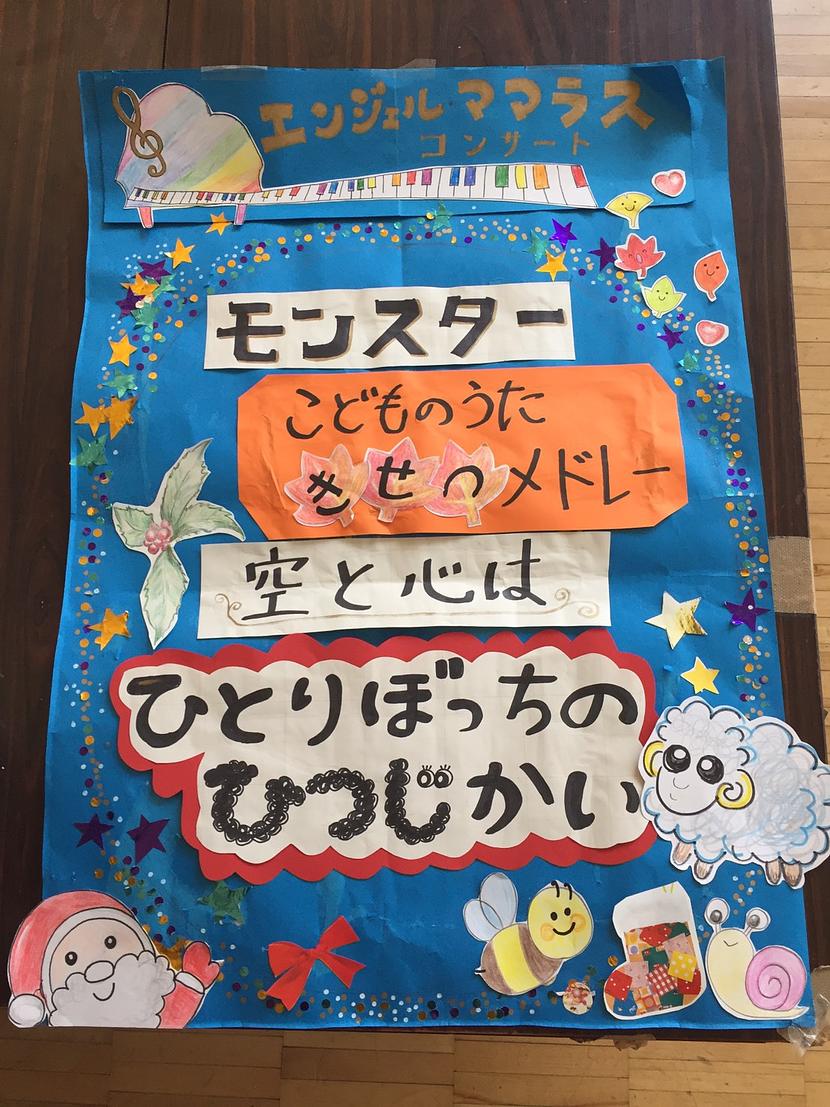 エンジェルママラス
コンサート
モンスター
こどものうた
きせつメドレー
空と心は
ひとりぼっちの
ひつじかい